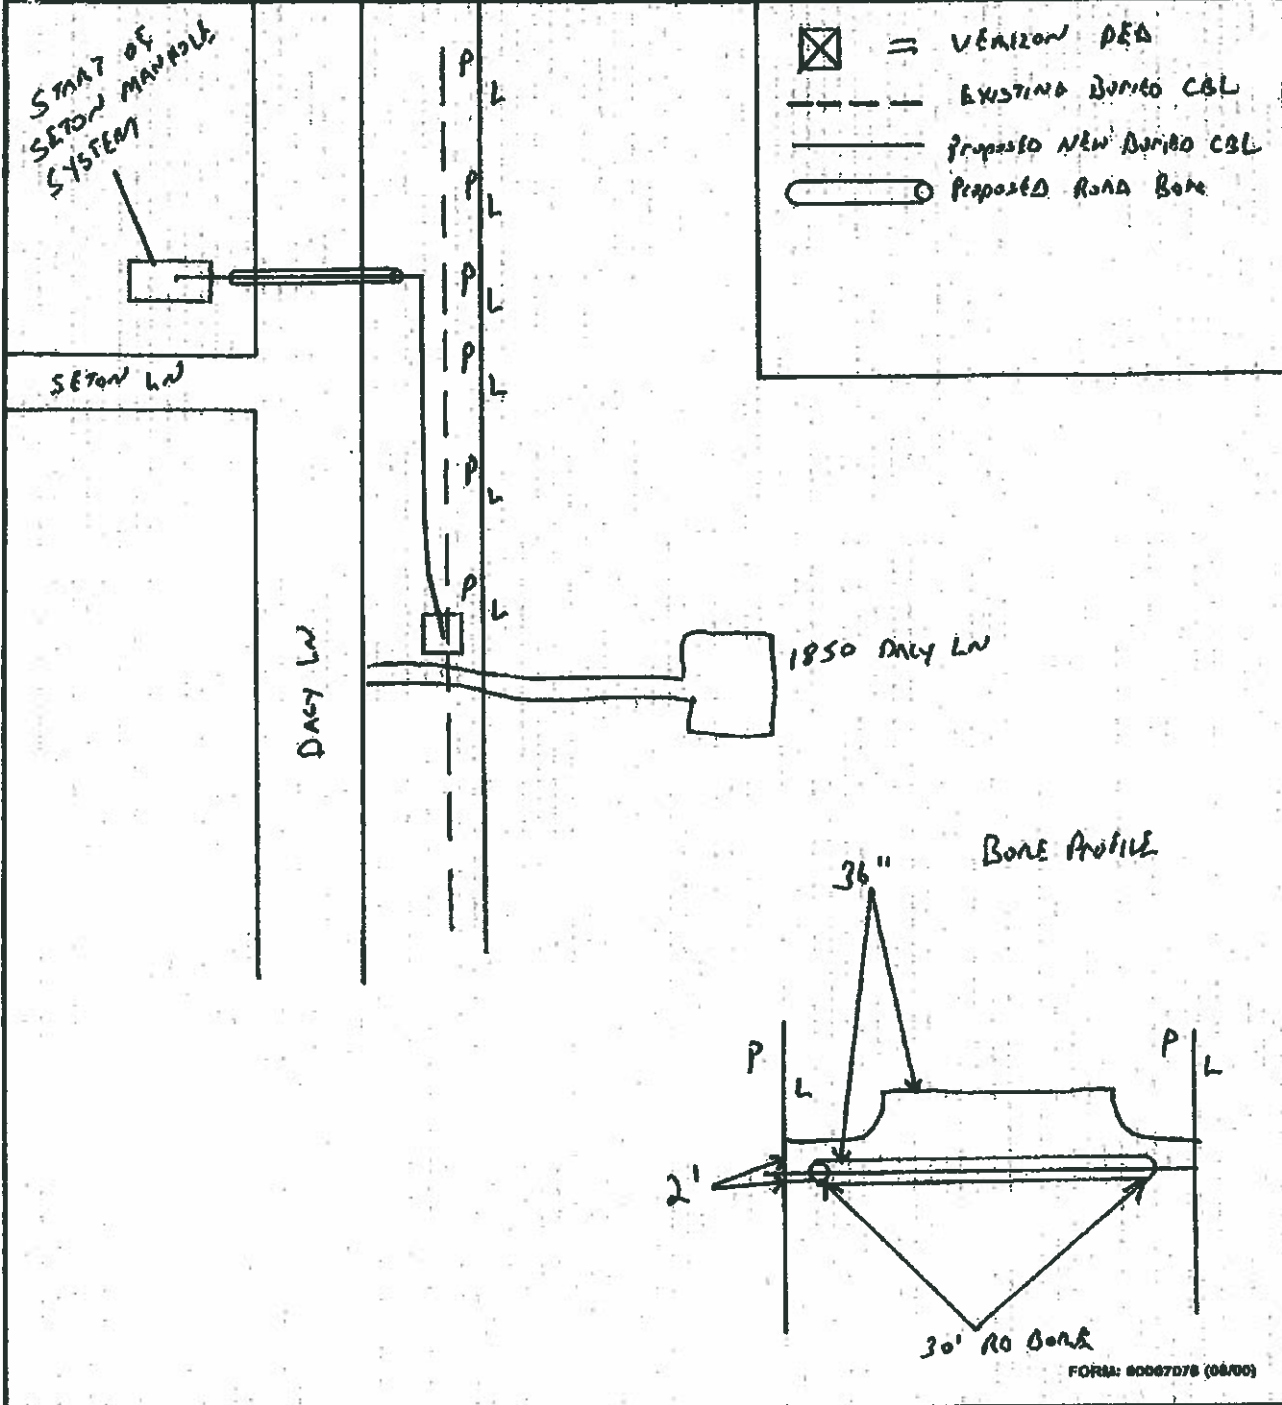 START OF
SETON MANHOLE
SYSTEM
= VERIZON PED
EXISTING BURIED CBL
PROPOSED NEW BURIED CBL
PROPOSED ROAD BORE
P
L
P
L
P
L
P
L
P
L
P
L
SETON LN
DACY LN
1850 DACY LN
BORE PROFILE
36"
P
L
P
L
2'
30' RD BORE
FORM: (08/00)